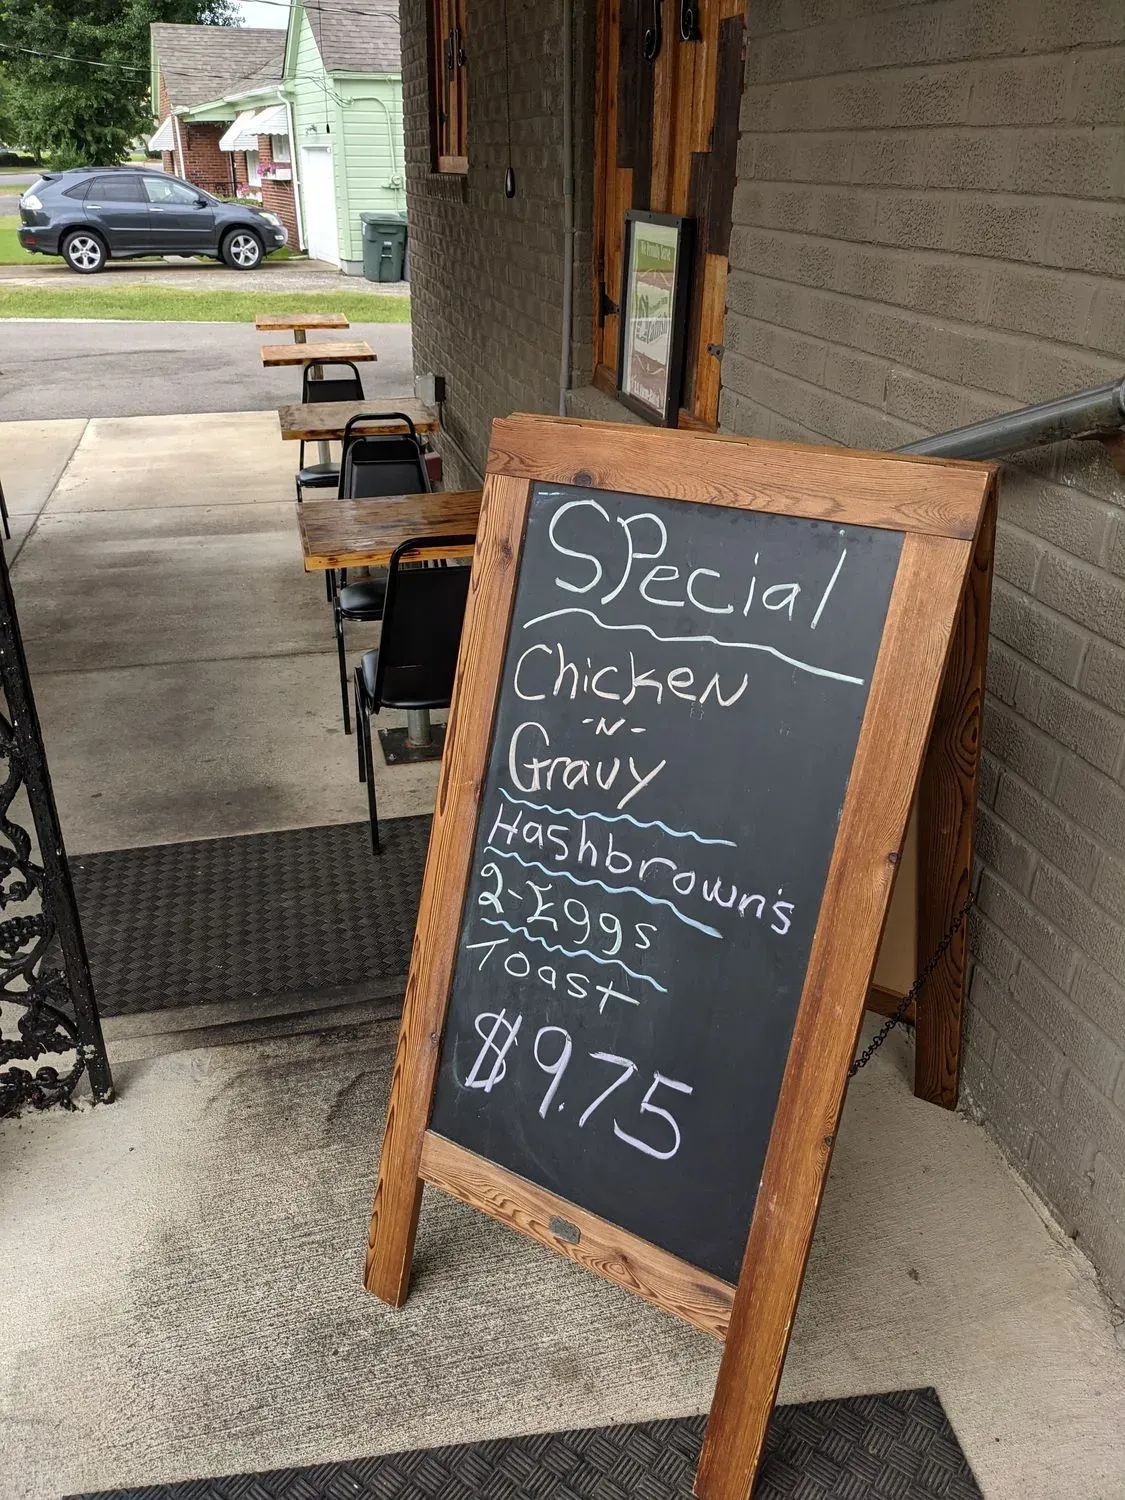 SPecial
Chicken
-N-
Gravy
Hashbrown's
2-Eggs
Toast
$9.75